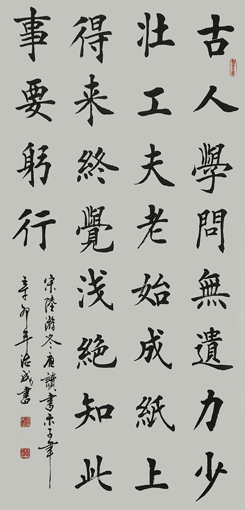 古人學問無遺力少
壯工夫老始成紙上
得来終覺浅絶知此
事要躬行
宋陸游冬夜讀書示子聿
辛卯年治成書